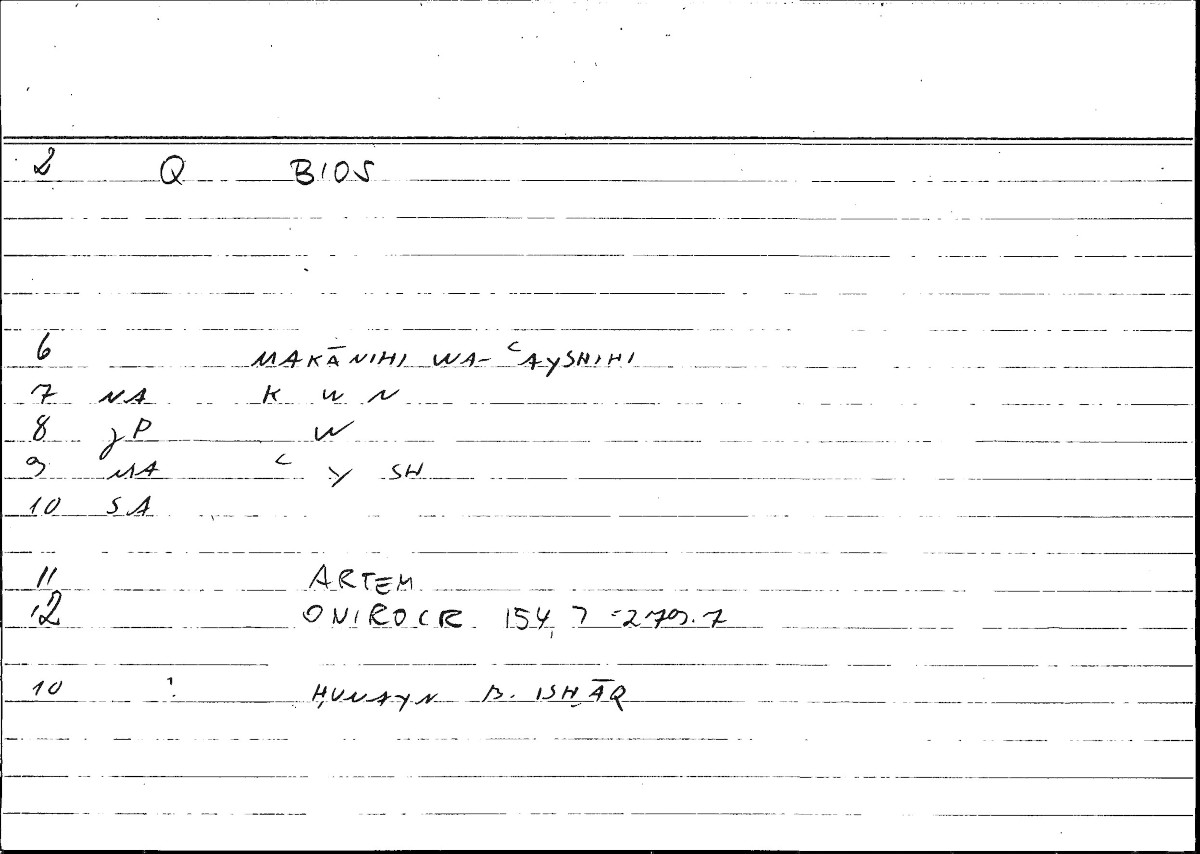 2 Q BIOS
6 MAKĀNIHI WA-ʿAYSHIHI
7 NA K W N
8 JP W
9 NA ʿ Y SH
10 SA
11 ARTEM
12 ONIROCR 154, 7 = 279.7
10 ? ḤUNAYN B. ISḤĀQ